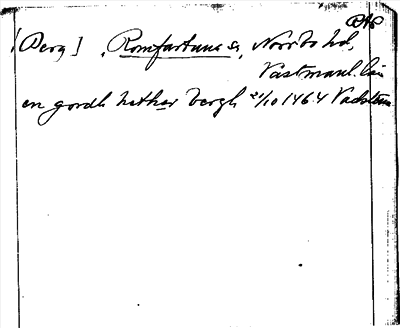 DHP
[Berg], Romfartuna sn, Norrbo hd,
Västmanl. län
en gordh hether bergh 21/10 1464 Vadstena